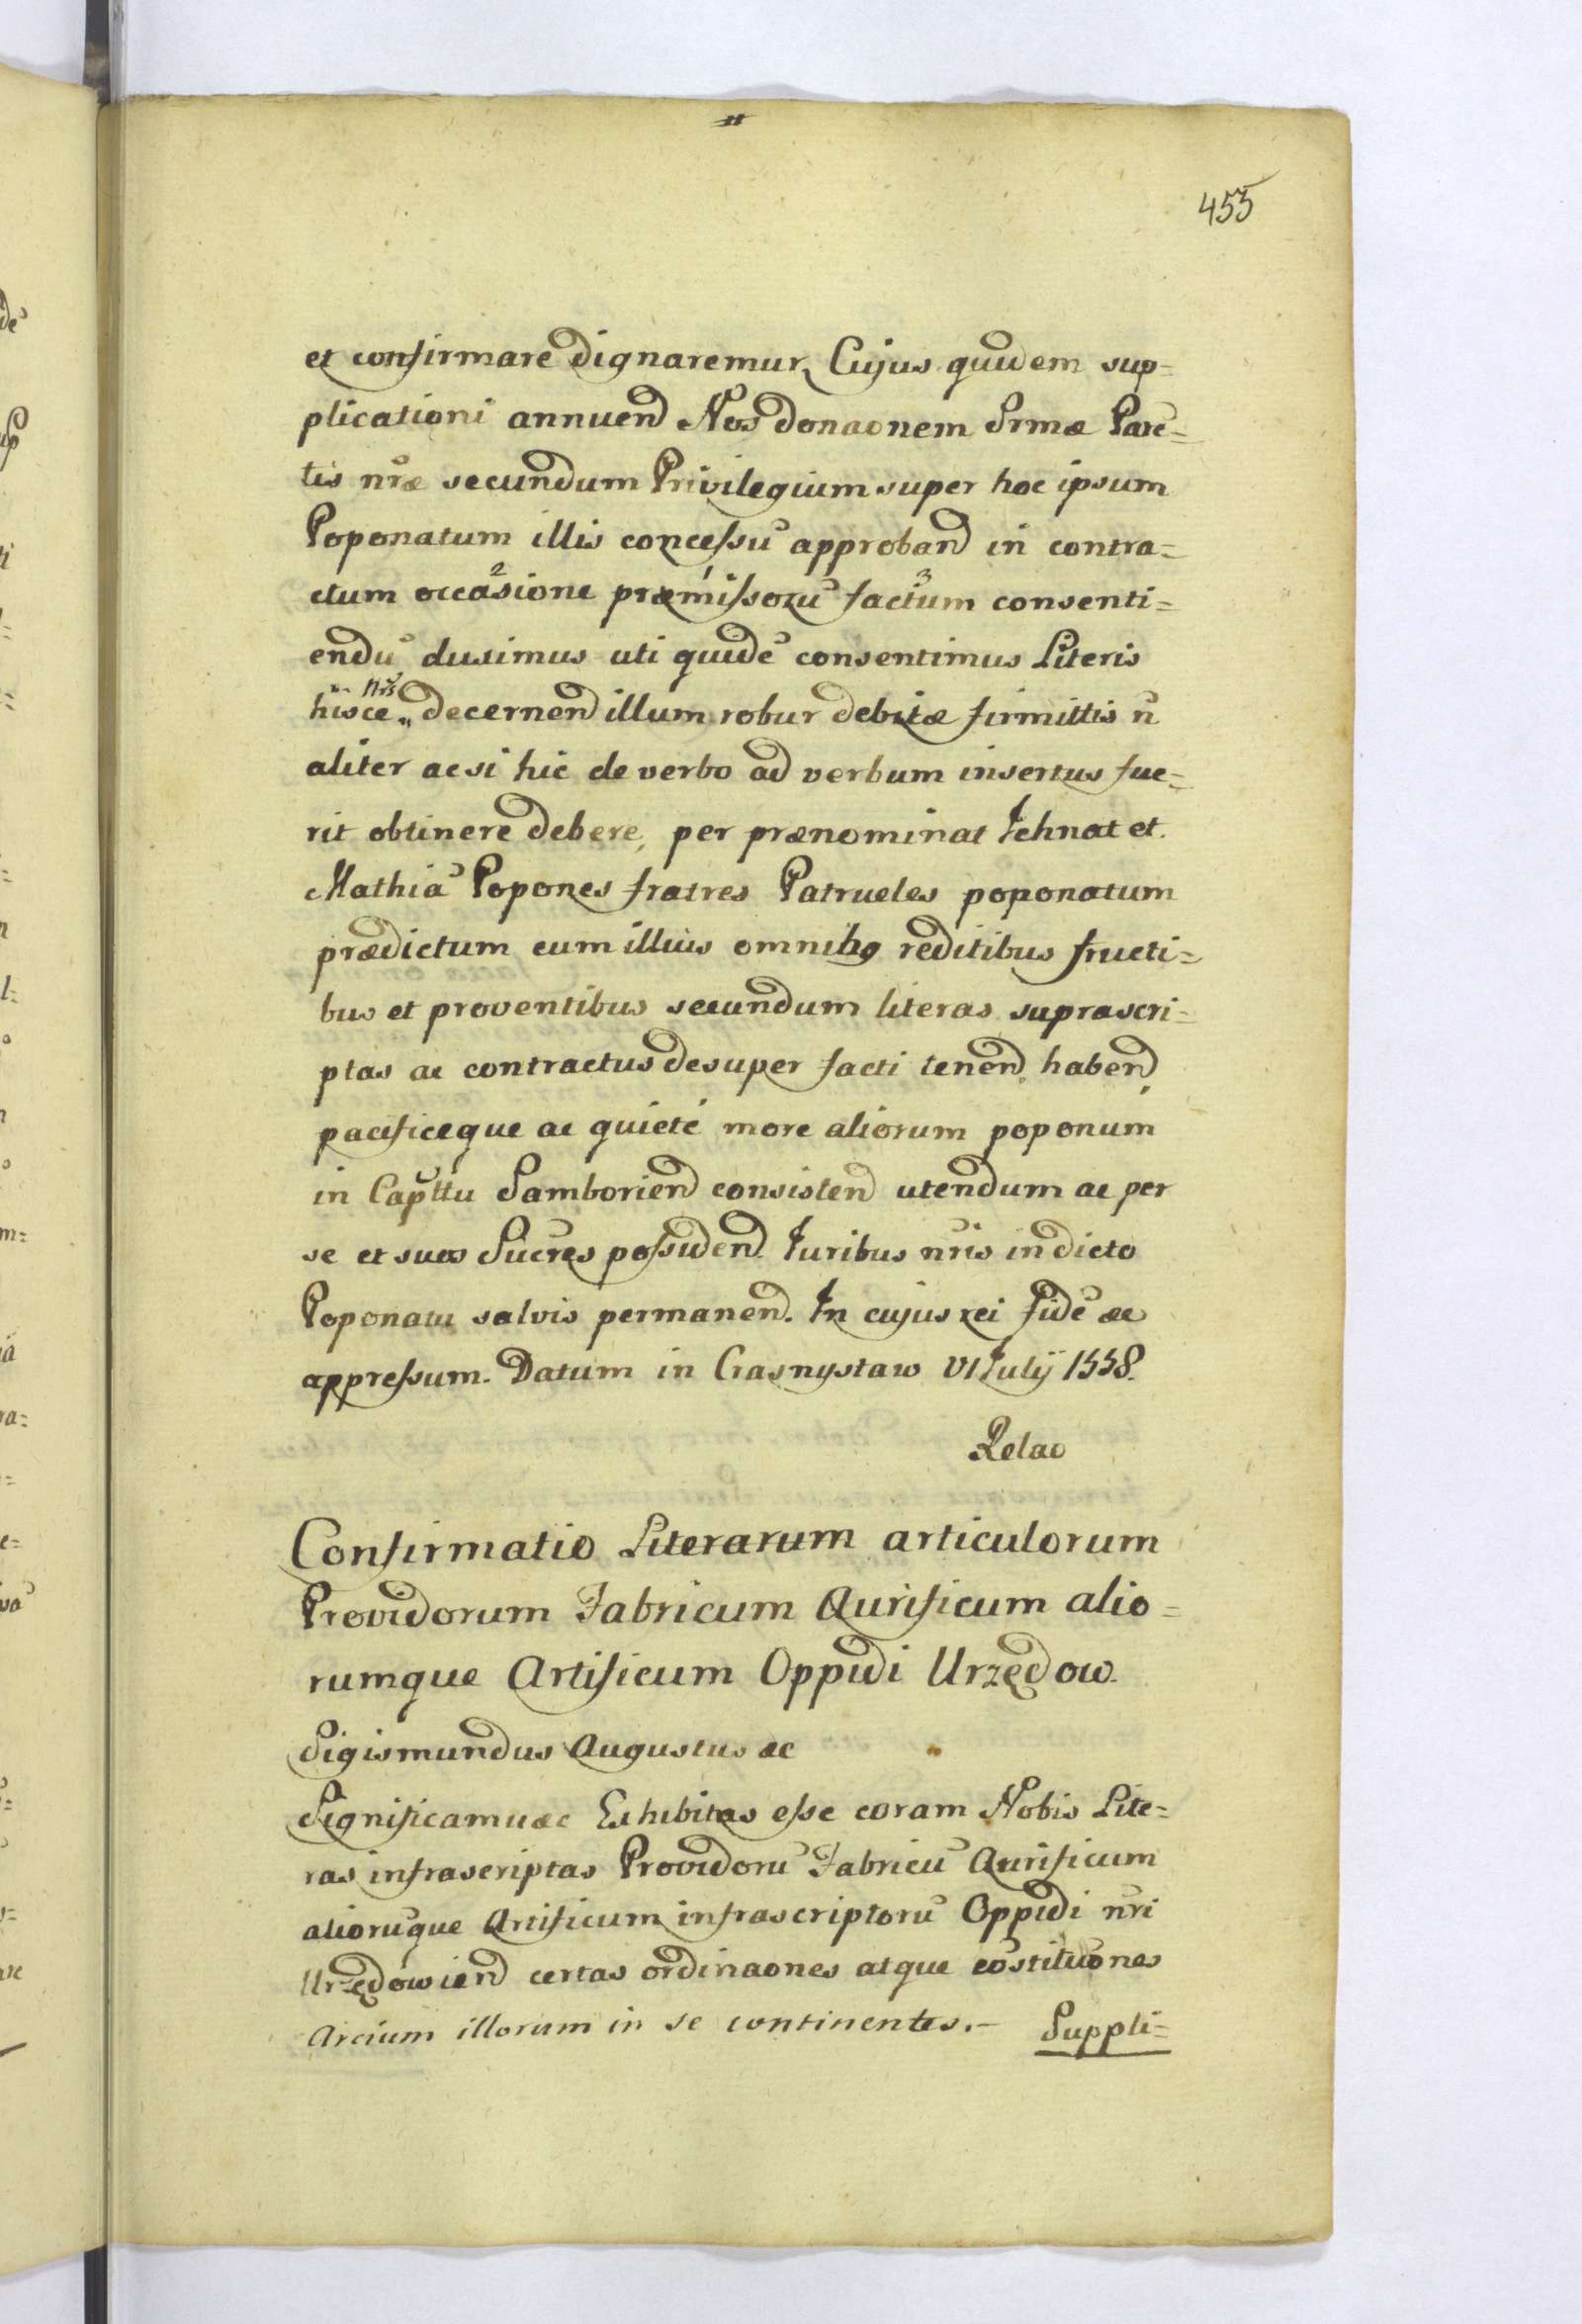 455
et confirmare dignaremur, Cujus quidem sup=
plicationi annuend Nos donaonem Srmæ Parē=
tis nr̄æ secundum Privilegium super hoc ipsum
Poponatum illis concessū approband in contra=
ctum occa²sione præ¹missorū fact³um consenti=
endū duximus uti quidē consentimus Literis
hisce nr̄is decernend illum robur debitæ firmittis n̄
aliter ac si hic de verbo ad verbum insertus fue=
rit obtinere debere, per prænominat Iehnat et
Mathiā Popones fratres Patrueles poponatum
prædictum cum illius omnibg reditibus fructi=
bus et proventibus secundum literas suprascri=
ptas ac contractus desuper facti tenend, habend,
pacificeque ac quieté more aliorum poponum
in Capttu Samboriend consistend utendum ac per
se et suos Sucr̄es possidend. Iuribus nr̄is in dicto
Poponatu salvis permanend. In cujus rei fidē æc
appressum. Datum in Crasnystaw VI Iulÿ 1558.
Relao
Confirmatio Literarum articulorum
Providorum Fabricum Aurificum alio=
rumque Artificum Oppidi Urzędow.
Sigismundus Augustus æc
Significamus æc Exhibitas esse coram Nobis Lite=
ras infrascriptas Providorū Fabricū Aurificum
aliorūque Artificum infrascriptorū Oppidi nr̄i
Urzędowiend certas ordinaones atque cōstituones
Arcium illorum in se continentes.– Suppli=